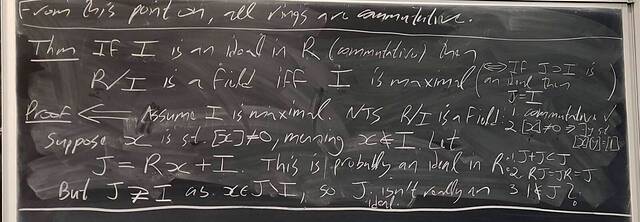 From this point on, all rings are commutative.
Thm If I is an ideal in R (commutative) then
R/I is a field iff I is maximal
(⇔ If J⊃I is
an ideal then
J=I
Proof ⇐ Assume I is maximal. NTS R/I is a field:
1 commutative ✓
2 [x]≠0 ⇒ ∃y st
[x][y]=[1]
Suppose x is st [x]≠0, meaning x∉I. Let
J=Rx+I. This is probably an ideal in R.
1. J+J⊂J
2. RJ=JR=J
3 1∉J ?
But J⊋I as x∈J\I, so J isn't really an
ideal.